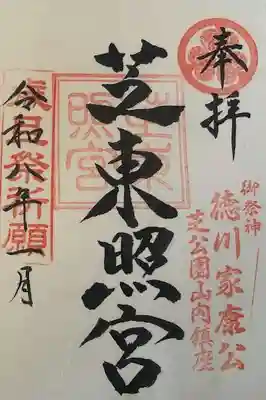 奉拝
御祭神
徳川家康公
芝公園山内鎮座
芝東照宮
芝東照宮
歳旦祭祈願
令和八年一月